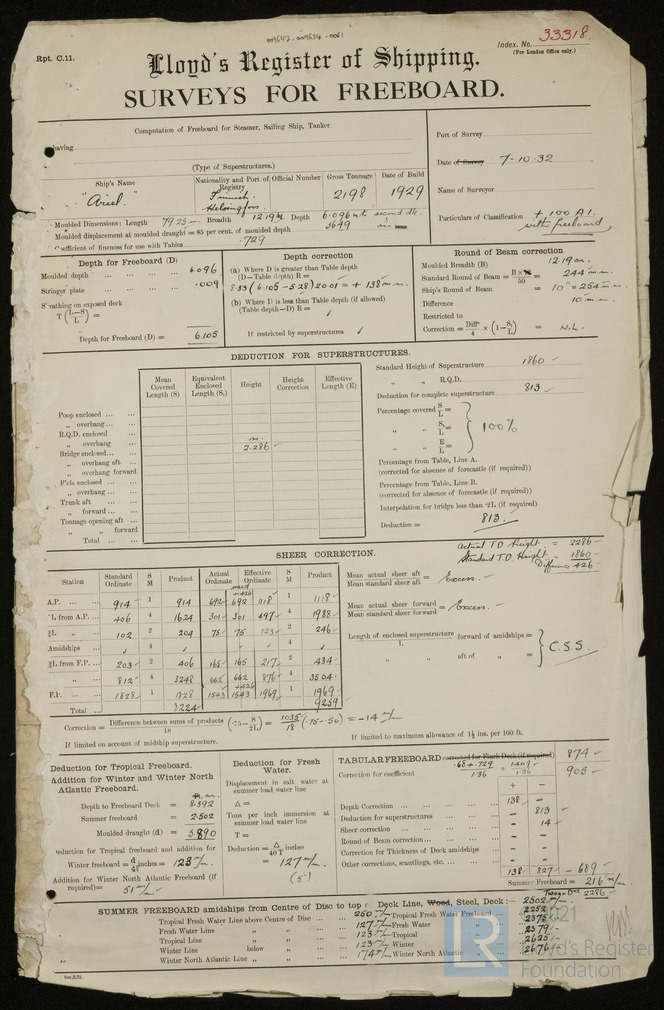 009647-009654-0061
Rpt. C.11.
Index. No. 33318.
(For London Office only.)
Lloyd's Register of Shipping.
SURVEYS FOR FREEBOARD.
Computation of Freeboard for Steamer, Sailing Ship, Tanker
having
(Type of Superstructures.)
Port of Survey
Date of Survey 7-10-32
Name of Surveyor
Particulars of Classification + 100 A1. with freeboard
Ship's Name Nationality and Port of Registry Official Number Gross Tonnage Date of Build
"Ariel" Finnish. Helsingfors. 2198 1929
Moulded Dimensions: Length 79.25 m. Breadth 12.19 m. Depth 6.096 mt second dk.
Moulded displacement at moulded draught = 85 per cent. of moulded depth 3649
Coefficient of fineness for use with Tables .729
Depth for Freeboard (D)
Moulded depth 6.096
Stringer plate .009
Sheathing on exposed deck
T (L-S / L) =
Depth for Freeboard (D) = 6.105
Depth correction
(a) Where D is greater than Table depth
(D-Table depth) R =
8.33 (6.105-5.28) 20.01 = + 138 m.m.
(b) Where D is less than Table depth (if allowed)
(Table depth-D) R =
If restricted by superstructures
Round of Beam correction
Moulded Breadth (B) 12.19 m.
Standard Round of Beam = B×12 / 50 = 244 m.m.
Ship's Round of Beam = 10" = 254 m.m.
Difference 10 m.m.
Restricted to
Correction = Diff / 4 × (1- S₁ / L) = NIL.
DEDUCTION FOR SUPERSTRUCTURES.
Mean Covered Length (S) Equivalent Enclosed Length (S₁) Height Height Correction Effective Length (E)
Poop enclosed
„ overhang
R.Q.D. enclosed
„ overhang m. 2.286
Bridge enclosed
„ overhang aft
„ overhang forward
F'cle enclosed
„ overhang
Trunk aft
„ forward
Tonnage opening aft
„ „ forward
Total
Standard Height of Superstructure 1860
„ „ R.Q.D.
Deduction for complete superstructure 813
Percentage covered S / L =
„ „ S₁ / L = 100%
„ „ E / L =
Percentage from Table, Line A.
(corrected for absence of forecastle (if required))
Percentage from Table, Line B.
(corrected for absence of forecastle (if required))
Interpolation for bridge less than ·2L (if required)
Deduction = 813.
Actual T.D. Height = 2286
Standard T.D. Height = 1860
Difference 426
SHEER CORRECTION.
Station Standard Ordinate S M Product Actual Ordinate Effective Ordinate S M Product
used +426
A.P. 914 1 914 692 692 1118 1 1118
L from A.P. 406 4 1624 301 301 497 4 1988
L „ 102 2 204 75 75 123 2 246
Amidships 4 4
L from F.P. 203 2 406 165 165 217 2 434
„ 812 4 3248 662 662 876 4 3504
+426
F.P. 1828 1 1828 1543 1543 1969 1 1969
Total 8224 9259
Mean actual sheer aft / Mean standard sheer aft = Excess.
Mean actual sheer forward / Mean standard sheer forward = Excess.
Length of enclosed superstructure forward of amidships = / L
„ „ aft of „ = C.S.S.
Correction = Difference between sums of products / 18 (·75- S / 2L) = 1035 / 18 (.75-.50) = -14 m/m
If limited on account of midship superstructure.
If limited to maximum allowance of 1½ ins. per 100 ft.
Deduction for Tropical Freeboard.
Addition for Winter and Winter North Atlantic Freeboard.
Depth to Freeboard Deck = 8.392
Summer freeboard = 2.502
Moulded draught (d) = 5.890
Deduction for Tropical freeboard and addition for
Winter freeboard = d / 48 inches = 123 m/m
Addition for Winter North Atlantic Freeboard (if required) = 51 m/m
Deduction for Fresh Water.
Displacement in salt water at summer load water line
Δ =
Tons per inch immersion at summer load water line
T =
Deduction = Δ / 40T inches
= 127 m/m.
(5")
TABULAR FREEBOARD corrected for Flush Deck (if required) 874
Correction for coefficient .68 + .729 / 1.36 = 1.409 / 1.36 905
+ -
Depth Correction 138 -
Deduction for superstructures - 813
Sheer correction - 14
Round of Beam correction - -
Correction for Thickness of Deck amidships - -
Other corrections, scantlings, etc. - -
138 827 - 689
Summer Freeboard = 216 m/m
2286
SUMMER FREEBOARD amidships from Centre of Disc to top of Deck Line, Wood, Steel, Deck:- 2502 m/m.
Tropical Fresh Water Line above Centre of Disc 250 m/m Tropical Fresh Water Freeboard 2252
Fresh Water Line „ „ 127 m/m Fresh Water „ 2375
Tropical Line „ „ 123 m/m Tropical „ 2379
Winter Line below „ 123 m/m Winter „ 2625
Winter North Atlantic Line „ „ 174 m/m Winter North Atlantic „ 2676
2021
LR
Lloyd's Register
Foundation